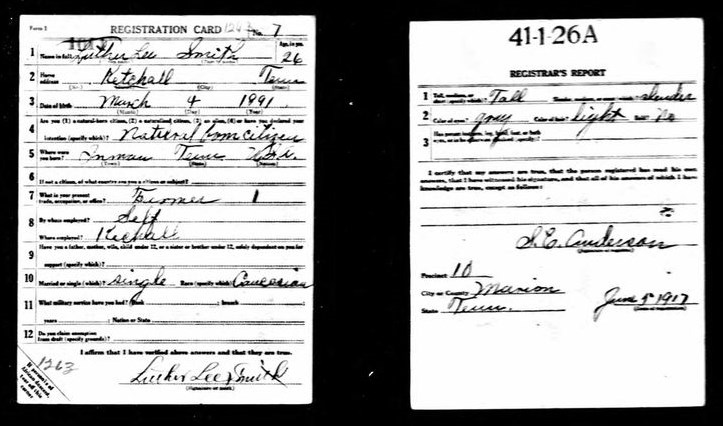 Form 1 REGISTRATION CARD No. 7
1 Name in full Luther Lee Smith Age, in yrs. 26
2 Home address Ketchall Tenn
(No.) (City) (State)
3 Date of birth March 4 1991
(Month) (Day) (Year)
4 Are you (1) a natural-born citizen, (2) a naturalized citizen, (3) an alien, (4) or have you declared your
intention (specify which)? Natural born citizen
5 Where were you born? Inman Tenn
(Town) (State) (Nation)
6 If not a citizen, of what country are you a citizen or subject?
7 What is your present trade, occupation, or office? Farmer 1
8 By whom employed? Self
Where employed? Ketchall
9 Have you a father, mother, wife, child under 12, or a sister or brother under 12, solely dependent on you for
support (specify which)?
10 Married or single (which)? single Race (specify which)? Caucasian
11 What military service have you had? Rank ; branch
years ; Nation or State
12 Do you claim exemption from draft (specify grounds)?
I affirm that I have verified above answers and that they are true.
1263
Luther Lee Smith
(Signature or mark)
If person is of African descent, tear off this corner
41-1-26A
REGISTRAR'S REPORT
1 Tall, medium, or short (specify which)? Tall Slender, medium, or stout (which)? slender
2 Color of eyes? gray Color of hair? light Bald? No
3 Has person lost arm, leg, hand, foot, or both eyes, or is he otherwise disabled (specify)?
I certify that my answers are true, that the person registered has read his own
answers, that I have witnessed his signature, and that all of his answers of which I have
knowledge are true, except as follows:
S. E. Anderson
(Signature of registrar)
Precinct 10
City or County Marion
State Tenn. June 5 1917
(Date of registration)